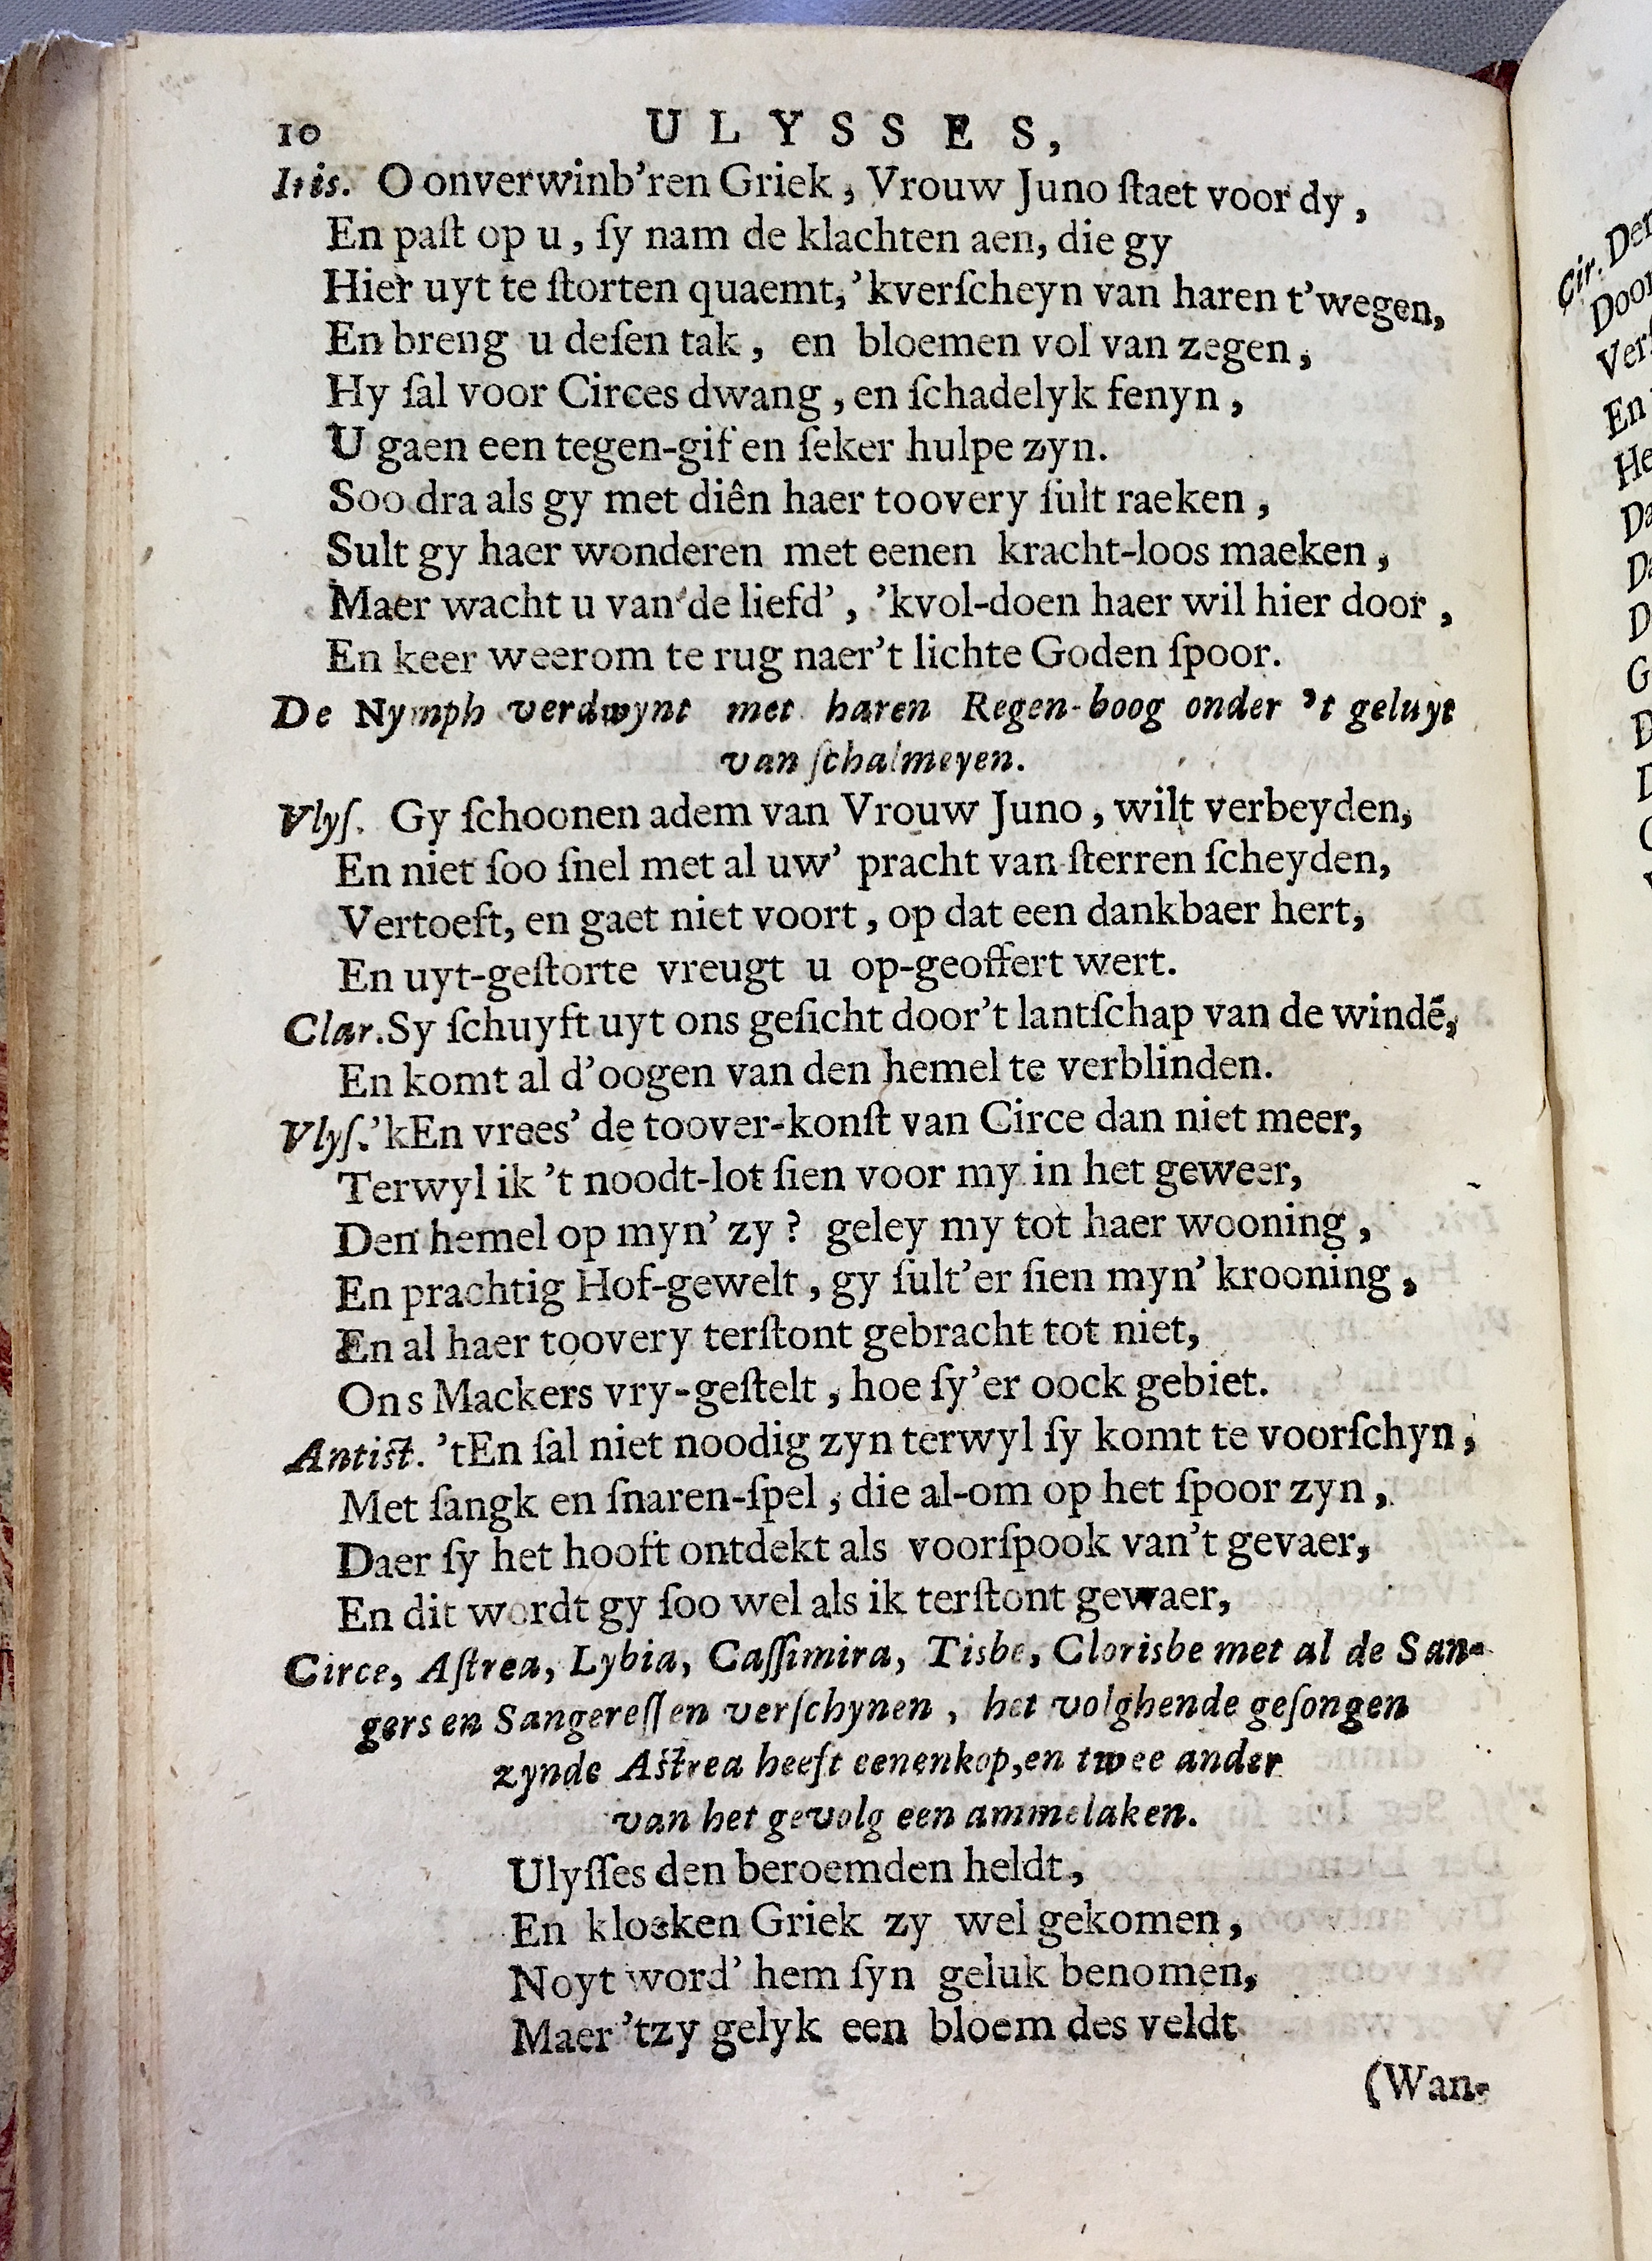 10 ULYSSES,
Iris. O onverwinb'ren Griek, Vrouw Juno ſtaet voor dy,
En paſt op u, ſy nam de klachten aen, die gy
Hier uyt te ſtorten quaemt, 'kverſcheyn van haren t'wegen,
En breng u deſen tak, en bloemen vol van zegen,
Hy ſal voor Circes dwang, en ſchadelyk fenyn,
U gaen een tegen-gif en ſeker hulpe zyn.
Soo dra als gy met diên haer toovery ſult raeken,
Sult gy haer wonderen met eenen kracht-loos maeken,
Maer wacht u van de liefd', 'kvol-doen haer wil hier door,
En keer weerom te rug naer't lichte Goden ſpoor.
De Nymph verdwynt met haren Regen-boog onder 't geluyt
van ſchalmeyen.
Vlyſ. Gy ſchoonen adem van Vrouw Juno, wilt verbeyden,
En niet ſoo ſnel met al uw' pracht van ſterren ſcheyden,
Vertoeft, en gaet niet voort, op dat een dankbaer hert,
En uyt-geſtorte vreugt u op-geoffert wert.
Clar. Sy ſchuyft uyt ons geſicht door't lantſchap van de windē,
En komt al d'oogen van den hemel te verblinden.
Vlyſ. 'kEn vrees' de toover-konſt van Circe dan niet meer,
Terwyl ik 't noodt-lot ſien voor my in het geweer,
Den hemel op myn' zy? geley my tot haer wooning,
En prachtig Hof-gewelt, gy ſult'er ſien myn' krooning,
En al haer toovery terſtont gebracht tot niet,
Ons Mackers vry-geſtelt, hoe ſy'er oock gebiet.
Antiſt. 'tEn ſal niet noodig zyn terwyl ſy komt te voorſchyn,
Met ſangk en ſnaren-ſpel, die al-om op het ſpoor zyn,
Daer ſy het hooft ontdekt als voorſpook van't gevaer,
En dit wordt gy ſoo wel als ik terſtont gewaer,
Circe, Aſtrea, Lybia, Caſſimira, Tisbe, Clorisbe met al de San-
gers en Sangereſſen verſchynen, het volghende geſongen
zynde Aſtrea heeft eenenkop, en twee ander
van het gevolg een ammelaken.
Ulyſſes den beroemden heldt,
En kloeken Griek zy wel gekomen,
Noyt word' hem ſyn geluk benomen,
Maer 'tzy gelyk een bloem des veldt
(Wan-
Cir. Der
Door
Verſ
En
He
Da
Da
D
G
D
D